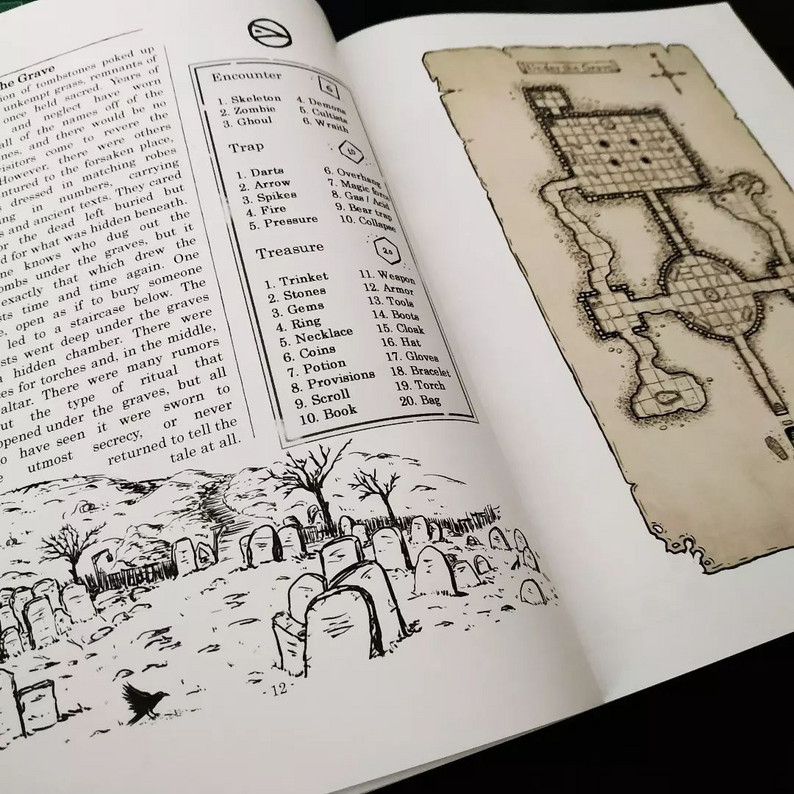 he Grave
ion of tombstones poked up
unkempt grass, remnants of
once held sacred. Years of
and neglect have worn
all of the names off of the
nes, and there would be no
visitors come to revere the
However, there were others
ntured to the forsaken place,
s dressed in matching robes
ng in numbers, carrying
s and ancient texts. They cared
or the dead left buried but
d for what was hidden beneath.
ne knows who dug out the
ombs under the graves, but it
exactly that which drew the
sts time and time again. One
e, open as if to bury someone
led to a staircase below. The
sts went deep under the graves
a hidden chamber. There were
es for torches and, in the middle,
altar. There were many rumors
ut the type of ritual that
opened under the graves, but all
o have seen it were sworn to
utmost secrecy, or never
returned to tell the
tale at all.
Encounter
6
1. Skeleton
2. Zombie
3. Ghoul
4. Demons
5. Cultists
6. Wraith
Trap
10
1. Darts
2. Arrow
3. Spikes
4. Fire
5. Pressure
6. Overhang
7. Magic force
8. Gas / Acid
9. Bear trap
10. Collapse
Treasure
20
1. Trinket
2. Stones
3. Gems
4. Ring
5. Necklace
6. Coins
7. Potion
8. Provisions
9. Scroll
10. Book
11. Weapon
12. Armor
13. Tools
14. Boots
15. Cloak
16. Hat
17. Gloves
18. Bracelet
19. Torch
20. Bag
- 12 -
Under the Grave